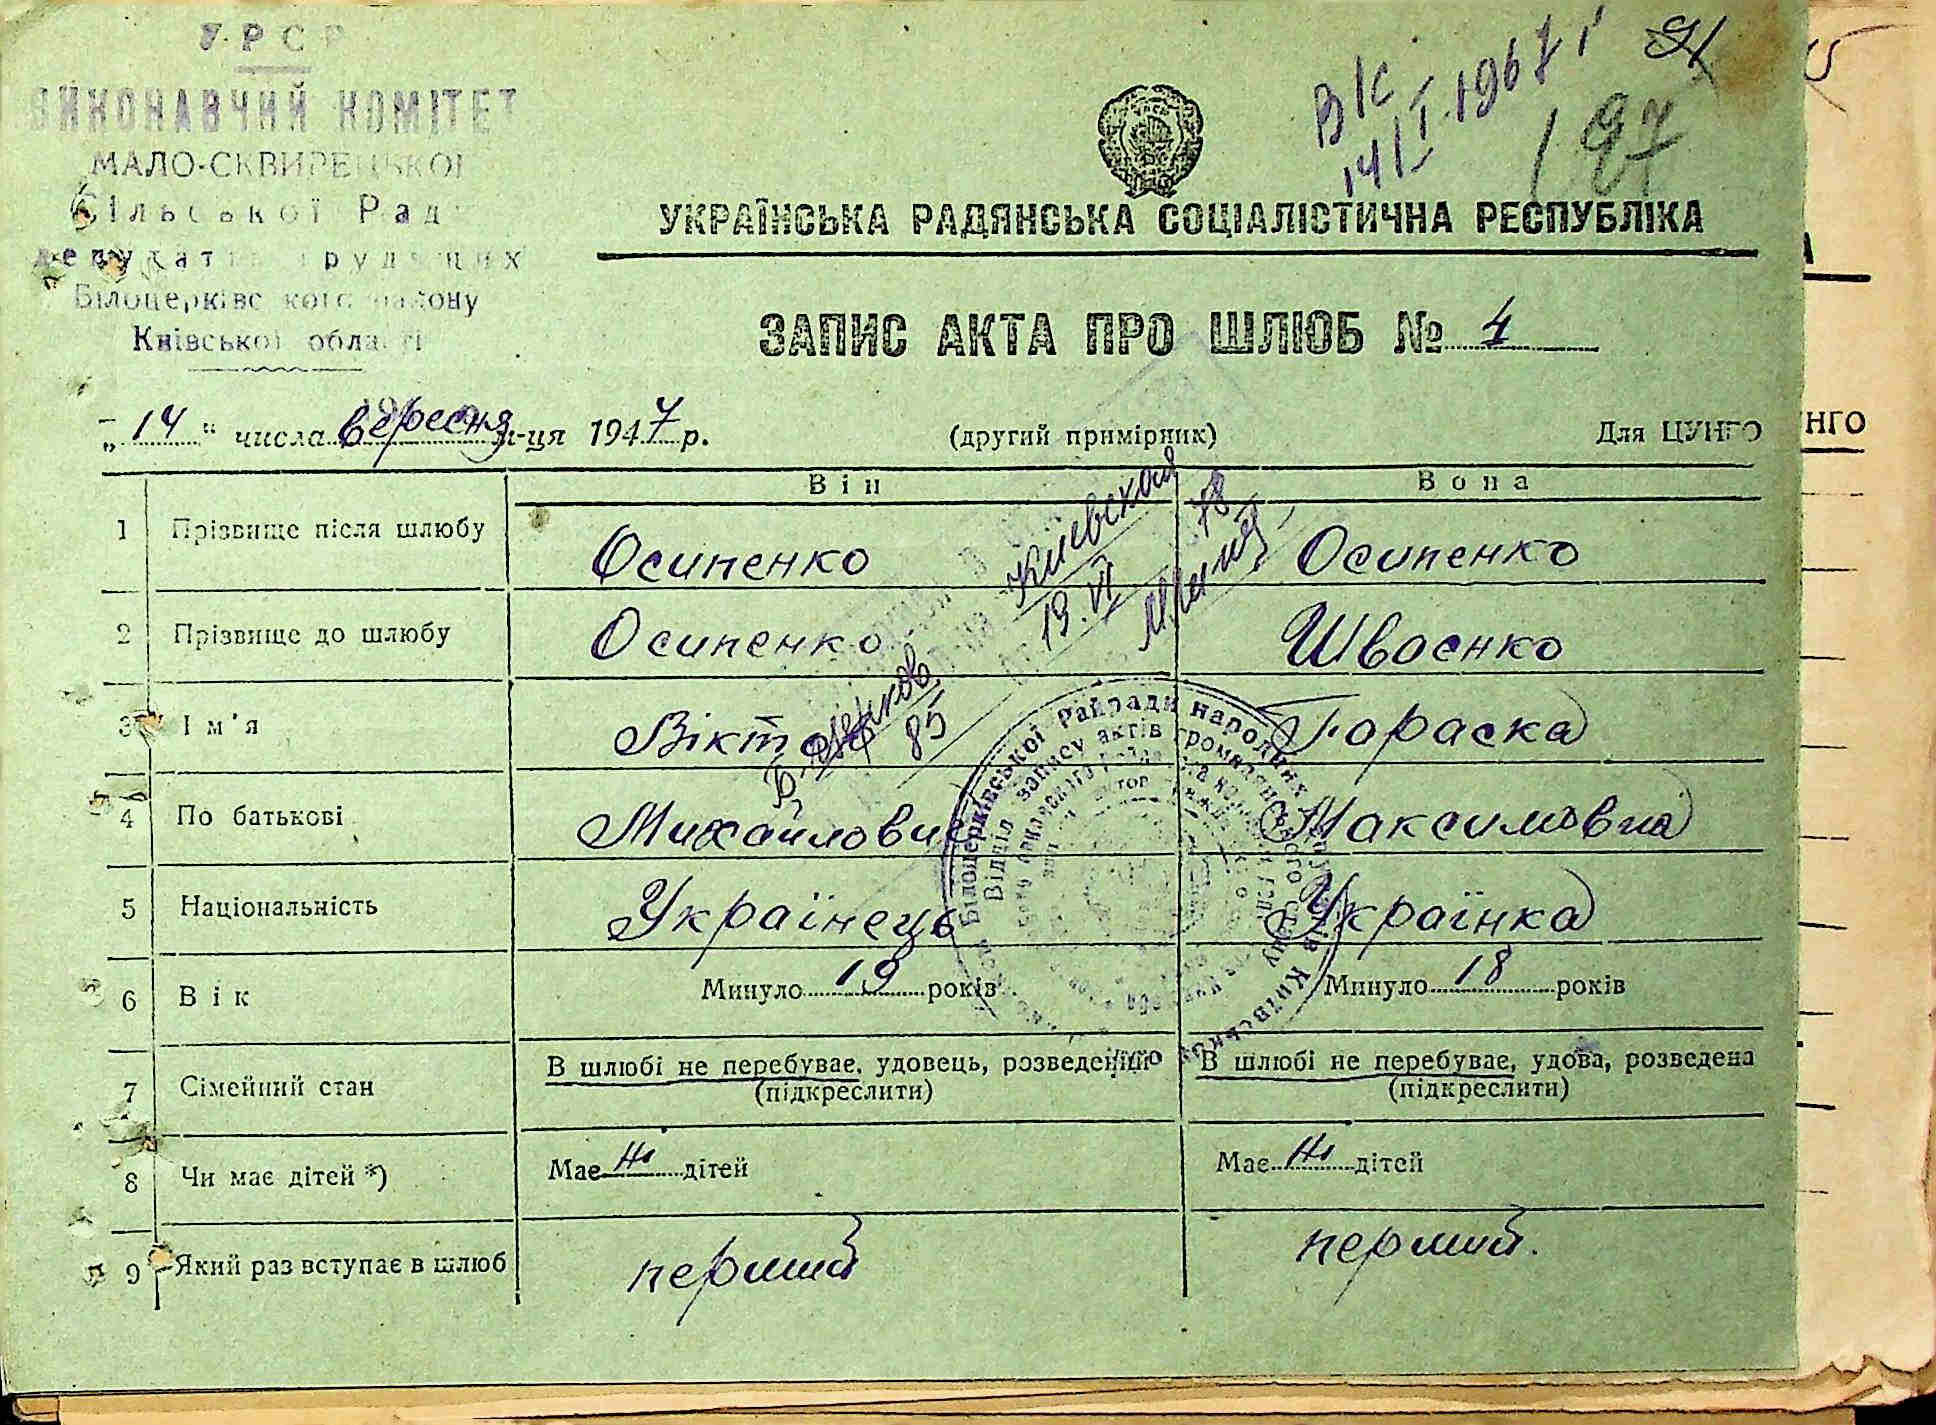 УРСР
ВИКОНАВЧИЙ КОМІТЕТ
МАЛО-СКВИРЕЦЬКОЇ
Сільської Ради
депутатів трудящих
Білоцерківського району
Київської області
В/С
14/I-1967 г
197
УКРАЇНСЬКА РАДЯНСЬКА СОЦІАЛІСТИЧНА РЕСПУБЛІКА
ЗАПИС АКТА ПРО ШЛЮБ № 4
„14“ числа вересня м-ця 1947 р.
(другий примірник)
Для ЦУНГО
НГО
Він Вона
1 Прізвище після шлюбу Осипенко Осипенко
2 Прізвище до шлюбу Осипенко Швоєнко
3 Ім'я Віктор Параска
4 По батькові Михайлович Максимовна
5 Національність Українець Українка
6 Вік Минуло 19 років Минуло 18 років
7 Сімейний стан В шлюбі не перебуває, удовець, розведений В шлюбі не перебуває, удова, розведена
(підкреслити) (підкреслити)
8 Чи має дітей *) Має ні дітей Має ні дітей
9 Який раз вступає в шлюб перший перший.
Киевская
19.VI 78
85
Білоцерківської Райради народних
Відділ запису актів громадянського стану